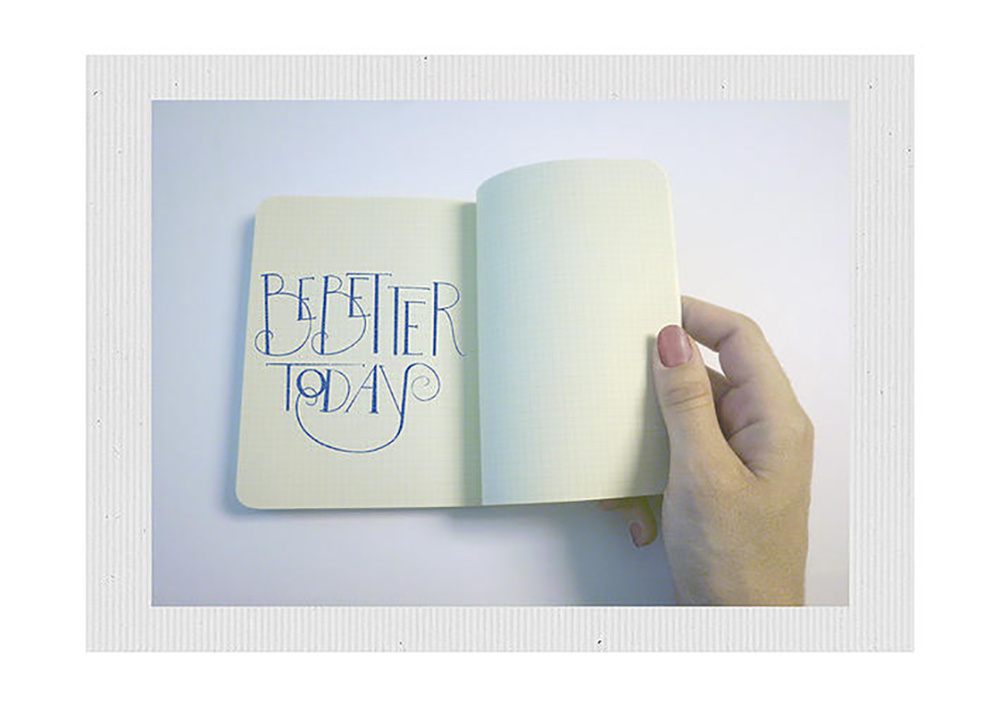 BE BETTER
TODAY